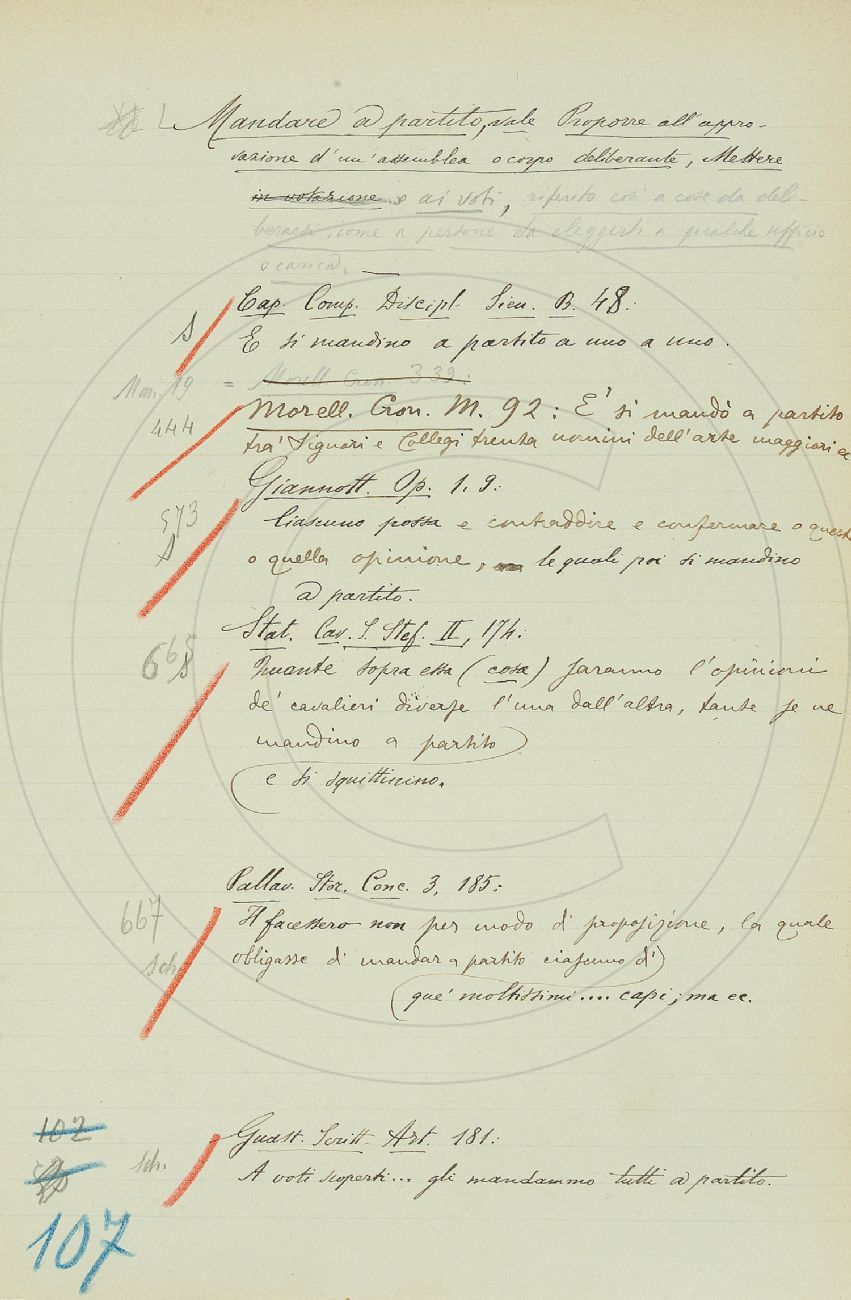 Mandare a partito, vale Proporre all'appro-
vazione d'un'assemblea o corpo deliberante, Mettere
in votazione o ai voti, riferito così a cose da deli-
berarsi, come a persone da eleggersi a qualche ufficio
o carica.
Cap. Comp. Discipl. Sien. B. 48:
S
E si mandino a partito a uno a uno.
Man. 19 = Morell. Cron. 339:
444 Morell. Cron. M. 92: E' si mandò a partito
tra' Signori e Collegi trenta uomini dell'arte maggiori ec
Giannott. Op. 1. 9:
573 Ciascuno possa e contraddire e confermare o questa
S o quella opinione, le quali poi si mandino
a partito.
Stat. Cav. S. Stef. II, 174:
665 S Quante sopra essa (cosa) saranno l'opinioni
de' cavalieri diverse l'una dall'altra, tante se ne
mandino a partito
e si squittinino.
Pallav. Stor. Conc. 3, 185:
667 Il facessero non per modo di proposizione, la quale
Sch. obligasse di mandar a partito ciascuno di
que' moltissimi.... capi; ma ec.
102
Guast. Scritt. Art. 181:
Sch. A voti scoperti... gli mandammo tutti a partito.
107